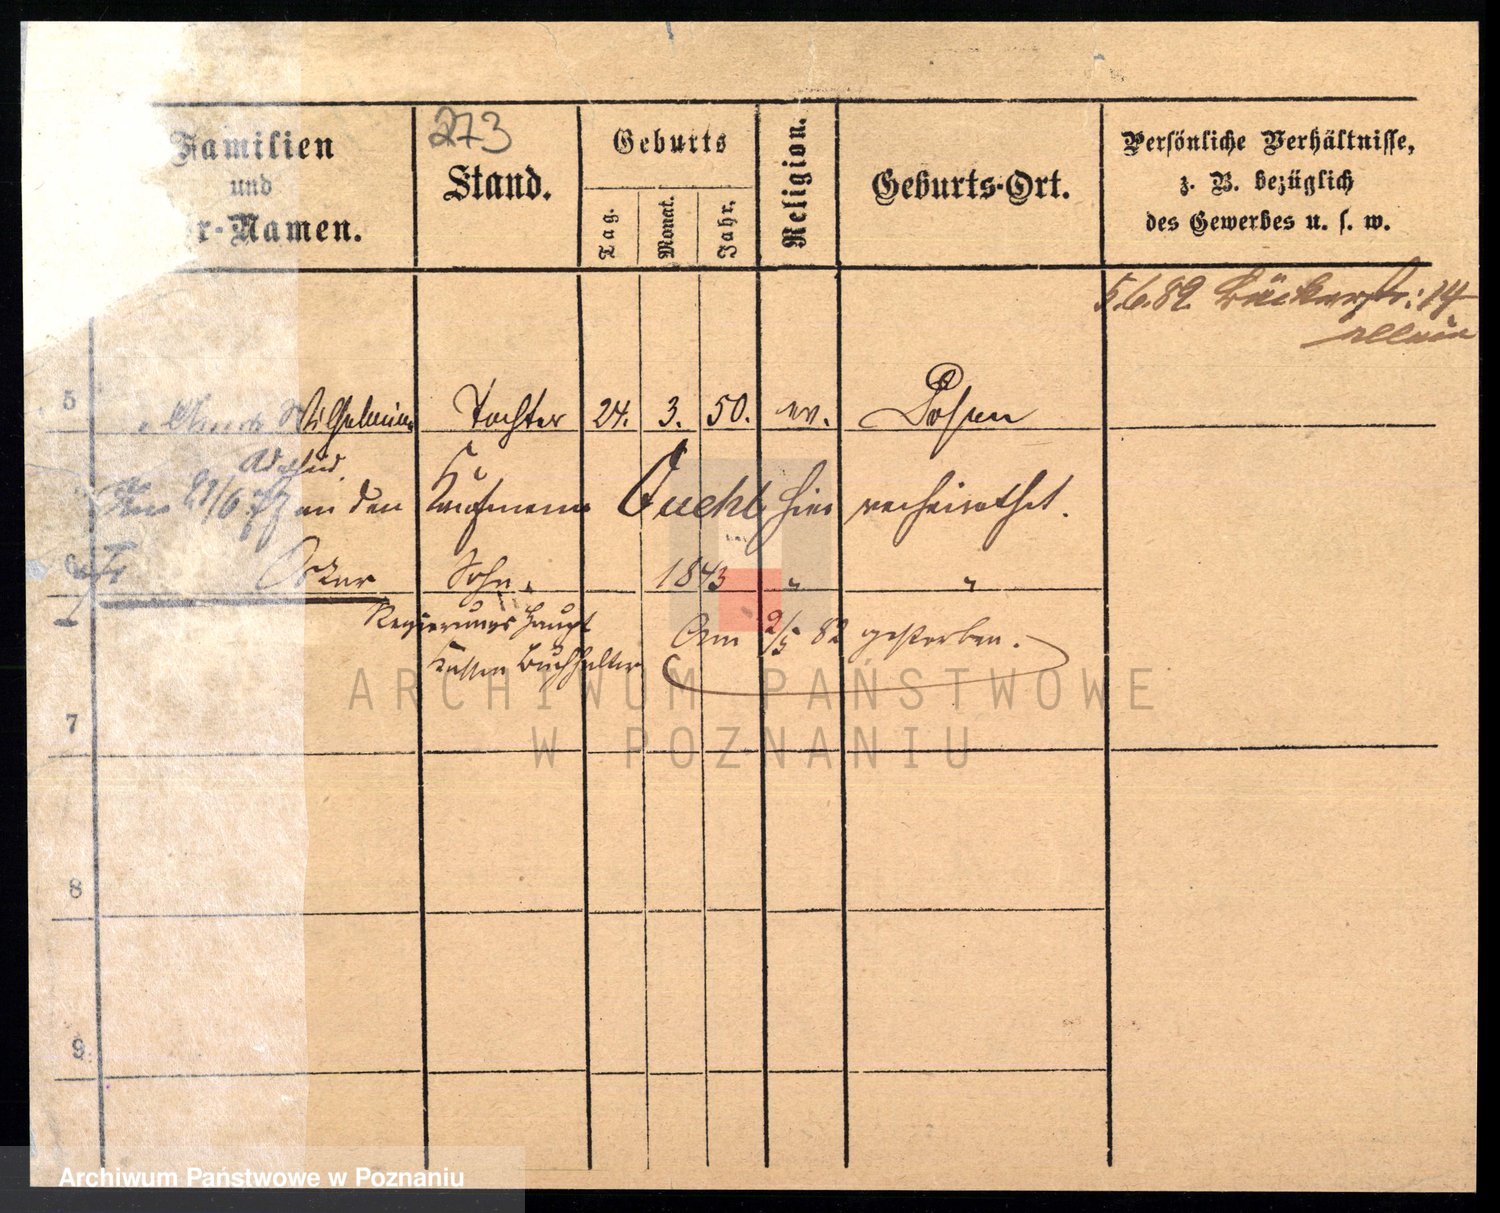 273
Familien
und
r-Namen.
Stand.
Geburts
Tag.
Monat.
Jahr.
Religion.
Geburts-Ort.
Persönliche Verhältnisse,
z. B. bezüglich
des Gewerbes u. s. w.
5.6.82. Bäckerstr: 14
5 Wilhelmine Tochter 24. 3. 50. ev. Posen
Adelheid.
an den Kaufmann hier verheirathet.
6 Oskar Sohn 1843 " "
Regierungs Haupt
Kassen Buchhalter
Am 2/5 82 gestorben.
ARCHIWUM PAŃSTWOWE
W POZNANIU
7
8
9
Archiwum Państwowe w Poznaniu